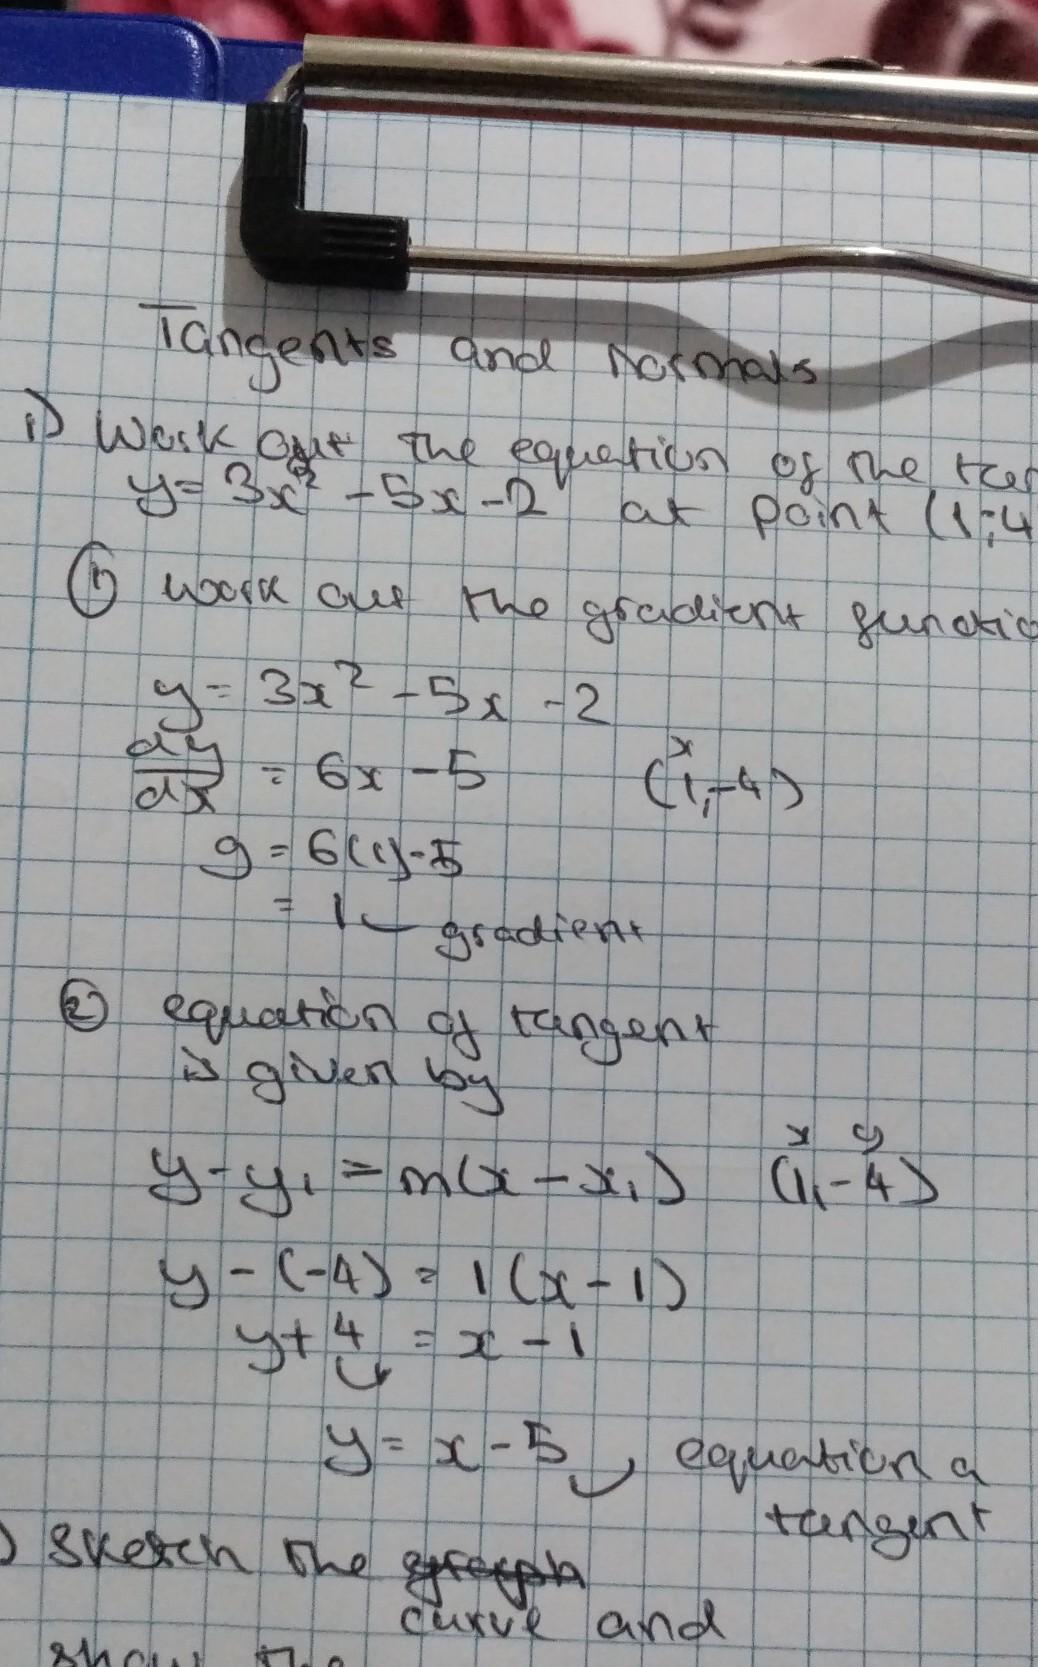 Tangents and Normals
1) Work out the equation of the
y = 3x² - 5x - 2 at point (1;4
① work out the gradient functio
y = 3x² - 5x - 2
dy/dx = 6x - 5 (1,-4)
x
g = 6(1) - 5
= 1 gradient
② equation of tangent
is given by
x y
y - y₁ = m(x - x₁) (1,-4)
y - (-4) = 1(x - 1)
y + 4 = x - 1
y = x - 5 equation a
tangent
) Sketch the graph
curve and
show the